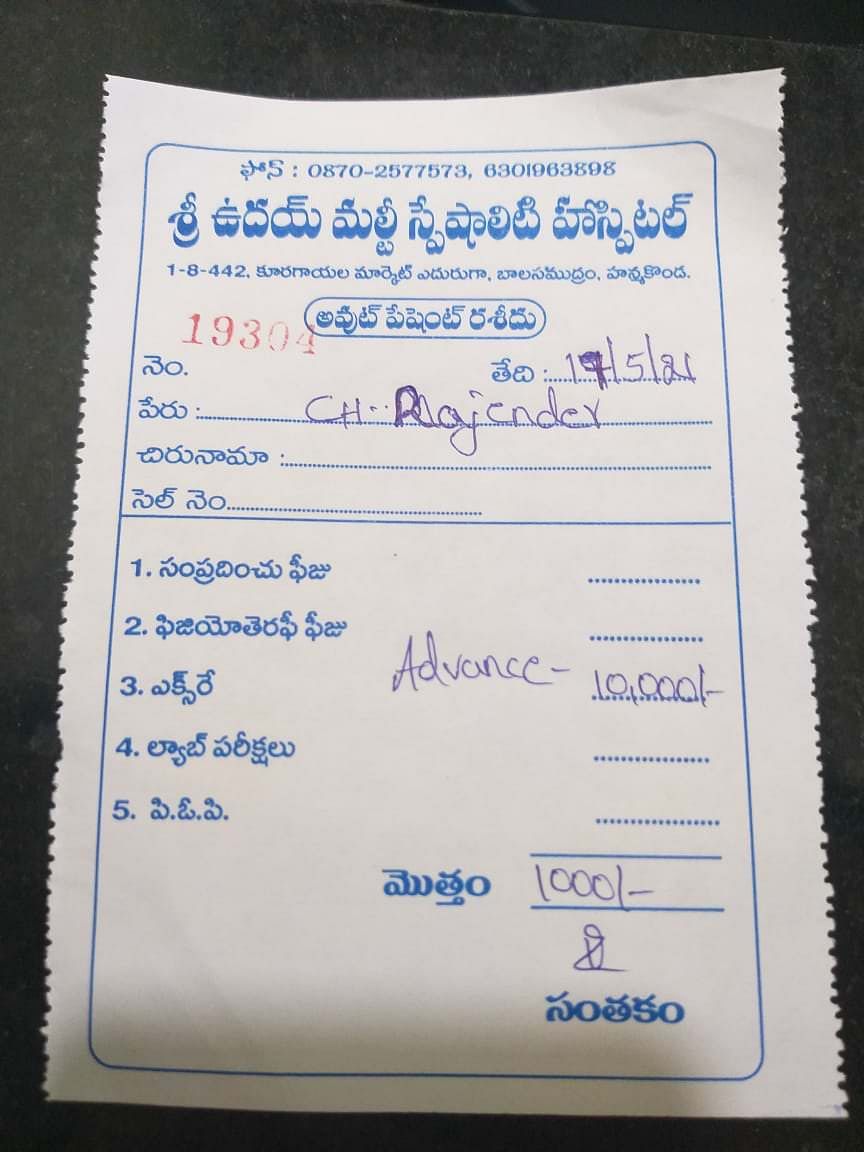 ఫోన్ : 0870-2577573, 6301963898
శ్రీ ఉదయ్ మల్టీ స్పేషాలిటి హాస్పిటల్
1-8-442, కూరగాయల మార్కెట్ ఎదురుగా, బాలసముద్రం, హన్మకొండ.
అవుట్ పేషెంట్ రశీదు
19304
నెం. తేది : 17/5/21
పేరు : CH. Rajender
చిరునామా :
సెల్ నెం.
1. సంప్రదించు ఫీజు
2. ఫిజియోతెరఫీ ఫీజు
3. ఎక్స్‌రే Advance - 10,000/-
4. ల్యాబ్ పరీక్షలు
5. పి.ఓ.పి.
మొత్తం 1000/-
సంతకం